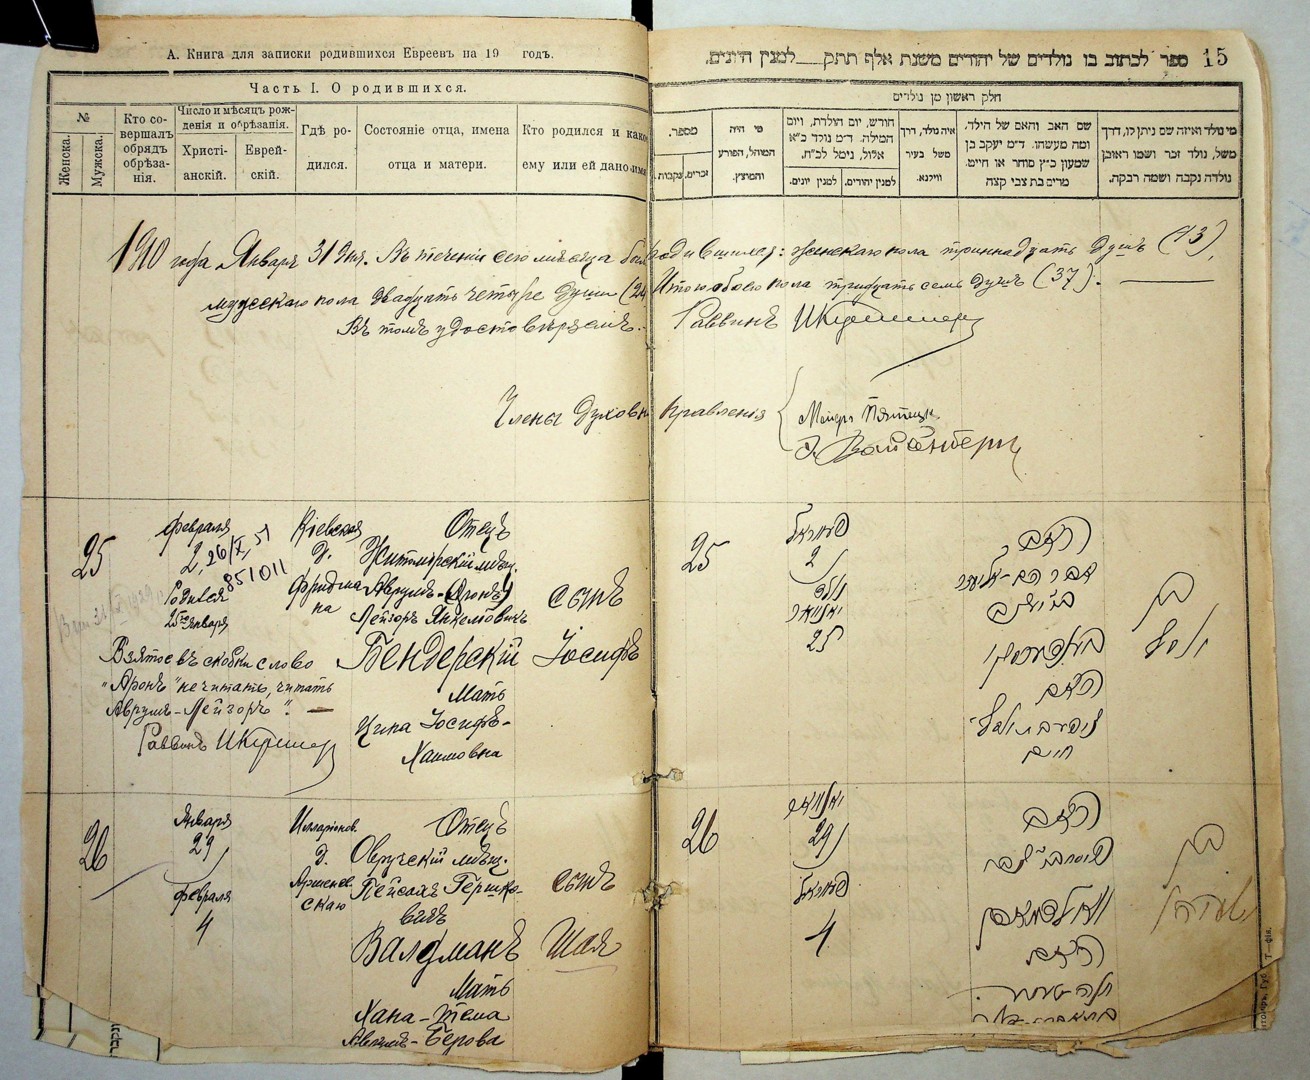 А. Книга для записки родившихся Евреевъ на 19 годъ.
Часть I. О родившихся.
№
Женска.
Мужска.
Кто со-
вершалъ
обрядъ
обрѣза-
нія.
Число и мѣсяцъ рож-
денія и обрѣзанія.
Христі-
анскій.
Еврей-
скій.
Гдѣ ро-
дился.
Состояніе отца, имена
отца и матери.
Кто родился и како
ему или ей дано има
ספר לכתוב בו נולדים של יהודים משנת אלף תתק___למנין היונים.
15
חלק ראשון מן נולדים
מספר.
זכרים.
נקבות.
מי היה
המוהל, הפורע
והמוצץ.
חורש, יום הולדת, ויום
המילה. ד״מ נולד כ״א
אלול, נימל לב״ח.
למנין יונים.
למנין יהודים.
איה נולד, דרך
משל בעיר
ווילנא.
שם האב והאם של הילד.
ומה מעשהו. ד״מ יעקב בן
שמעון כ״ץ סוחר או חייט.
מרים בת צבי קצה
מי נולד ואיזה שם ניתן לו, דרך
משל, נולד זכר ושמו ראובן
נולדה נקבה ושמה רבקה.
1910 года Января 31 дня. Въ теченіи сего мѣсяца было родившихся: женскаго пола тринадцать душъ (13),
мужескаго пола двадцать четыре души (24) Итого обоего пола тридцать семь душъ (37).
Въ томъ удостовѣряемъ. Раввинъ
Члены Духовн Правленія
25
Февраля
2, 26/X, 51
851011
Родился
25го Января
Взятое въ скобки слово
"Аронъ" не читать, читать
Аврумъ-Лейзоръ".
Раввинъ
Кіевская
д.
Фридма
на
Отецъ
Житомірскій мѣщ.
Аврумъ-(Аронъ)
Лейзоръ Янкелевичъ
Бендерскій
Мать
Цина Іосифъ-
Хаимовна
сынъ
Іосифъ
25
פעווראל
2
נולד
יאנוואר
25
האב
אברהם-אליעזר
האם
חיים
בן
יוסף
26
Января
29
Февраля
4
Илларіонов.
д.
Аршенев
скаго
Отецъ
Овручскій мѣщ.
Пейсахъ Гершко-
вичъ
Валдманъ
Мать
Хана-Тема
Аврумъ-Берова
сынъ
Шая
26
יאנוואר
29
פעווראל
4
האב
וואלדמאן
האם
בן
ישעיה